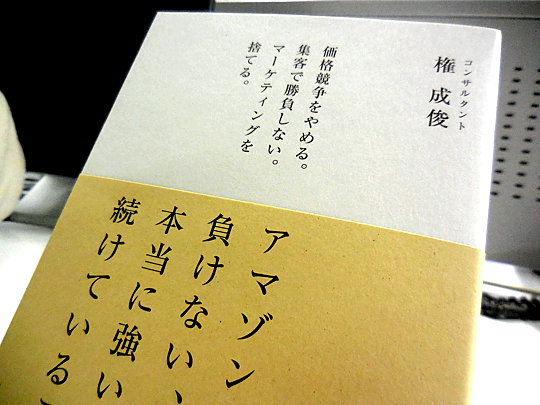 コンサルタント
権 成俊
価格競争をやめる。
集客で勝負しない。
マーケティングを
捨てる。
アマゾン
負けない、
本当に強い
続けている